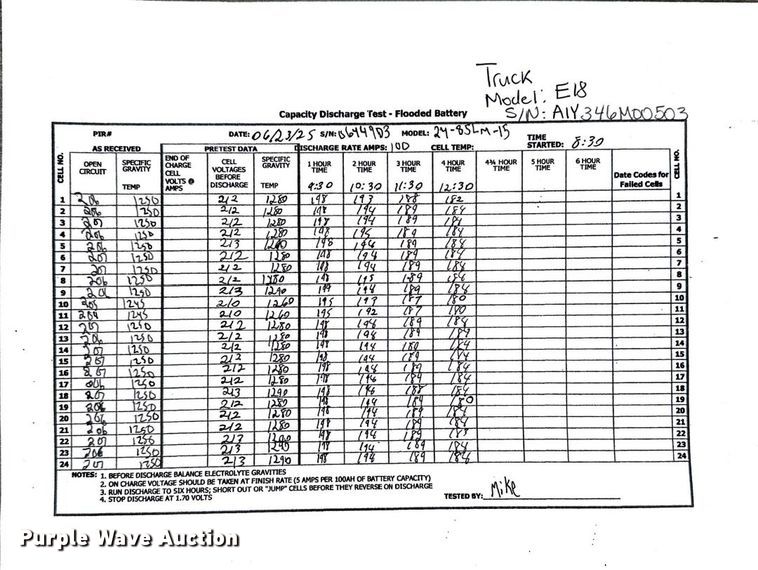 Truck
Model: E18
S/N: A1Y346M00503
Capacity Discharge Test - Flooded Battery
PIR# DATE: 06/23/25 S/N: MODEL: 24-85LM-15 TIME STARTED: 8:30
AS RECEIVED PRETEST DATA DISCHARGE RATE AMPS: 100 CELL TEMP:
CELL NO. OPEN CIRCUIT SPECIFIC GRAVITY TEMP END OF CHARGE CELL VOLTS @ AMPS CELL VOLTAGES BEFORE DISCHARGE SPECIFIC GRAVITY TEMP 1 HOUR TIME 2 HOUR TIME 3 HOUR TIME 4 HOUR TIME 4¾ HOUR TIME 5 HOUR TIME 6 HOUR TIME Date Codes for Failed Cells CELL NO.
9:30 10:30 11:30 12:30
1 206 1250 212 1280 198 193 188 182 1
2 206 1250 212 1280 198 194 189 184 2
3 207 1250 212 1280 198 194 189 184 3
4 206 1250 212 1280 198 195 189 184 4
5 206 1250 213 198 194 189 184 5
6 207 1250 212 1280 198 194 189 184 6
7 207 1250 212 1280 198 194 189 184 7
8 206 1250 212 198 195 189 184 8
9 1250 213 1290 199 194 189 184 9
10 1245 210 1260 195 193 187 180 10
11 1245 210 1260 195 192 187 180 11
12 207 1250 212 1280 198 194 189 184 12
13 206 1250 212 1280 198 194 189 184 13
14 207 1250 212 1280 198 194 184 14
15 207 1250 212 1280 198 194 189 184 15
16 207 1250 212 1280 198 194 189 184 16
17 206 1250 212 1280 198 194 189 184 17
18 207 1250 213 1290 198 194 188 184 18
19 206 1250 212 1280 198 194 189 19
20 206 1250 212 1280 198 194 189 184 20
21 206 1250 212 1280 198 194 189 184 21
22 207 1250 213 1290 198 194 189 183 22
23 206 1250 213 1290 198 194 189 184 23
24 207 1250 213 1290 198 194 189 184 24
NOTES: 1. BEFORE DISCHARGE BALANCE ELECTROLYTE GRAVITIES
2. ON CHARGE VOLTAGE SHOULD BE TAKEN AT FINISH RATE (5 AMPS PER 100AH OF BATTERY CAPACITY)
3. RUN DISCHARGE TO SIX HOURS; SHORT OUT OR "JUMP" CELLS BEFORE THEY REVERSE ON DISCHARGE
4. STOP DISCHARGE AT 1.70 VOLTS
TESTED BY: Mike
Purple Wave Auction